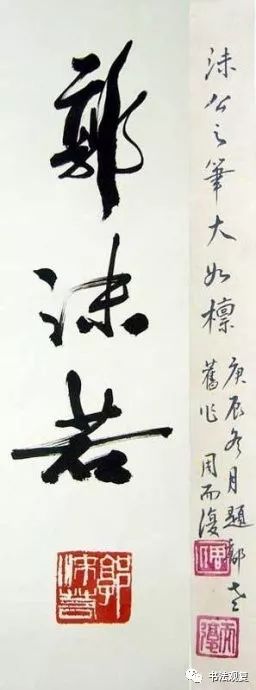 沫公之筆大如檁
庚辰冬月題郭老
舊作 周而復
郭沫若
郭沫若
书法观复